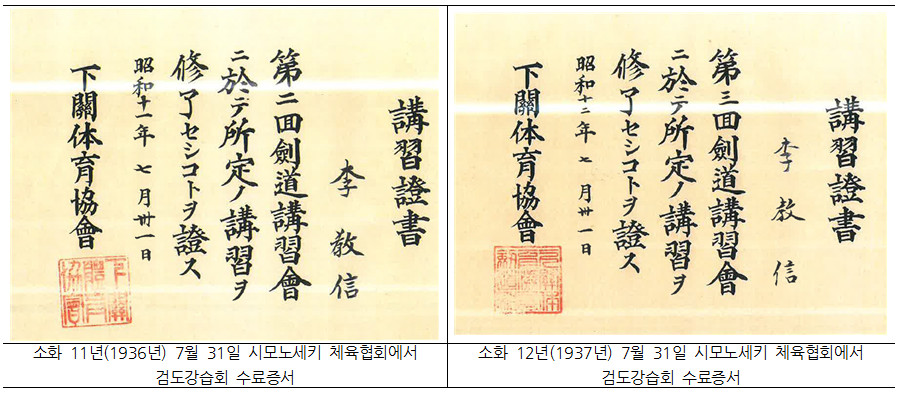 講習證書
李敎信
第二回劍道講習會
ニ於テ所定ノ講習ヲ
修了セシコトヲ證ス
昭和十一年 七月卅一日
下關体育協會
下關
體育
協會
소화 11년(1936년) 7월 31일 시모노세키 체육협회에서
검도강습회 수료증서
講習證書
李教信
第三回劍道講習會
ニ於テ所定ノ講習ヲ
修了セシコトヲ證ス
昭和十二年 七月卅一日
下關体育協會
소화 12년(1937년) 7월 31일 시모노세키 체육협회에서
검도강습회 수료증서